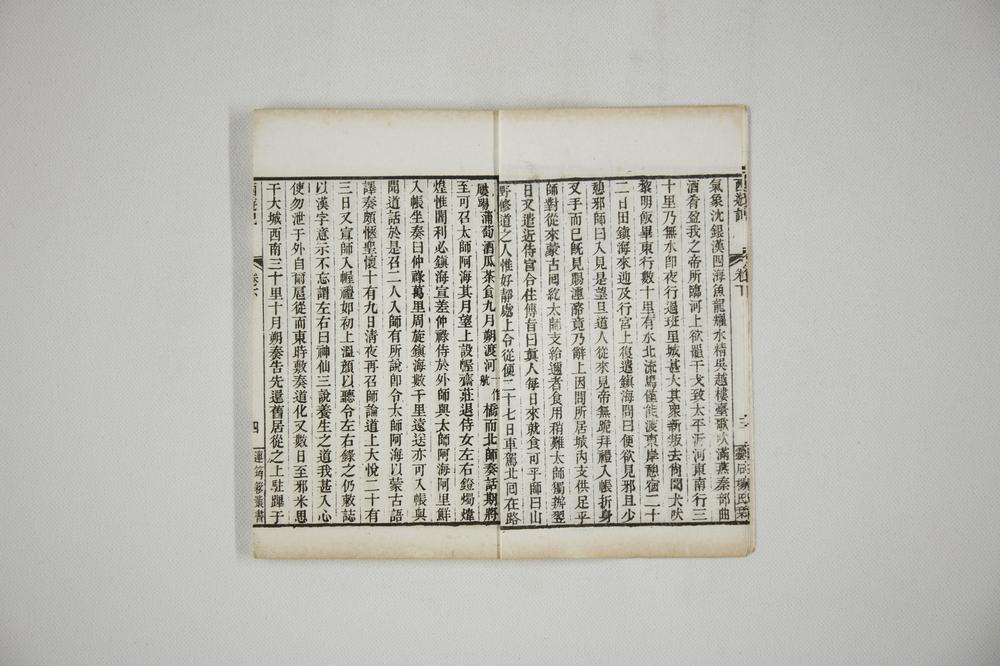 西遊記 卷下 三 靈石楊氏栞
氣象沈銀漢四海魚龍耀水精吳越樓臺歌吹滿燕秦部曲
酒肴盈我之帝所臨河上欲罷干戈致太平泝河東南行三
十里乃無水卽夜行過班里城甚大其衆新叛去尚聞犬吠
黎明飯畢東行數十里有水北流馬僅能渡東岸憩宿二十
二日田鎭海來迎及行宮上復遣鎭海問曰便欲見邪且少
憩邪師曰入見是望且道人從來見帝無跪拜禮入帳折身
叉手而已旣見賜湩酪竟乃辭上因問所居城內支供足乎
師對從來蒙古囘紇太師支給邇者食用稍難太師獨辦翌
日又遣近侍官合住傳旨曰眞人每日來就食可乎師曰山
野修道之人惟好靜處上令從便二十七日車駕北囘在路
屢賜蒲萄酒瓜茶食九月朔渡河一作航橋而北師奏話期將
至可召太師阿海其月望上設幄齋莊退侍女左右鐙燭煒
煌惟闍利必鎭海宣差仲祿侍於外師與太師阿海阿里鮮
入帳坐奏曰仲祿萬里周旋鎭海數千里遠送亦可入帳與
聞道話於是召二人入師有所說卽令太師阿海以蒙古語
譯奏頗愜聖懷十有九日淸夜再召師論道上大悅二十有
三日又宣師入幄禮如初上溫顏以聽令左右錄之仍敕誌
以漢字意示不忘謂左右曰神仙三說養生之道我甚入心
使勿泄于外自爾扈從而東時敷奏道化又數日至邪米思
干大城西南三十里十月朔奏告先還舊居從之上駐蹕于
西遊記 卷下 四 連筠簃叢書